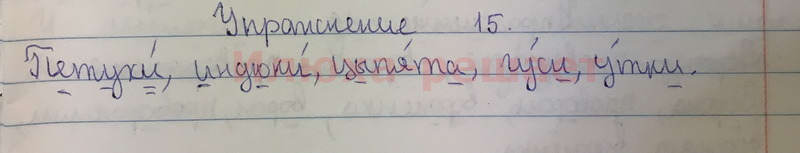 Упражнение 15.
Петухи́, индюки́, цыпля́та, гу́си, у́тки.